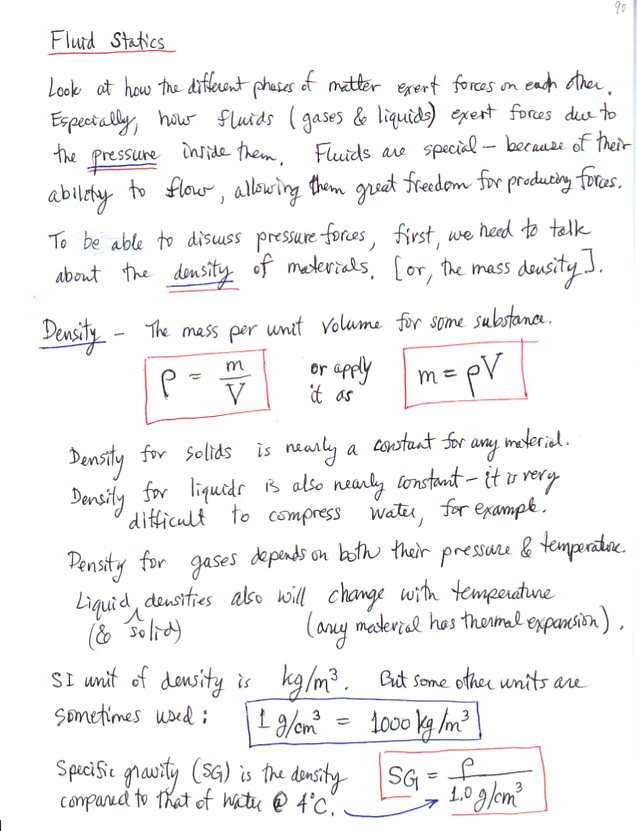 90
Fluid Statics
Look at how the different phases of matter exert forces on each other.
Especially, how fluids (gases & liquids) exert forces due to
the pressure inside them. Fluids are special – because of their
ability to flow, allowing them great freedom for producing forces.
To be able to discuss pressure forces, first, we need to talk
about the density of materials. [or, the mass density].
Density – The mass per unit volume for some substance.
ρ = m/V or apply it as m = ρV
Density for solids is nearly a constant for any material.
Density for liquids is also nearly constant – it is very
difficult to compress water, for example.
Density for gases depends on both their pressure & temperature.
Liquid densities also will change with temperature
(& solid) (any material has thermal expansion).
SI unit of density is kg/m³. But some other units are
sometimes used: 1 g/cm³ = 1000 kg/m³
Specific gravity (SG) is the density
compared to that of water @ 4°C. SG = ρ/1.0 g/cm³